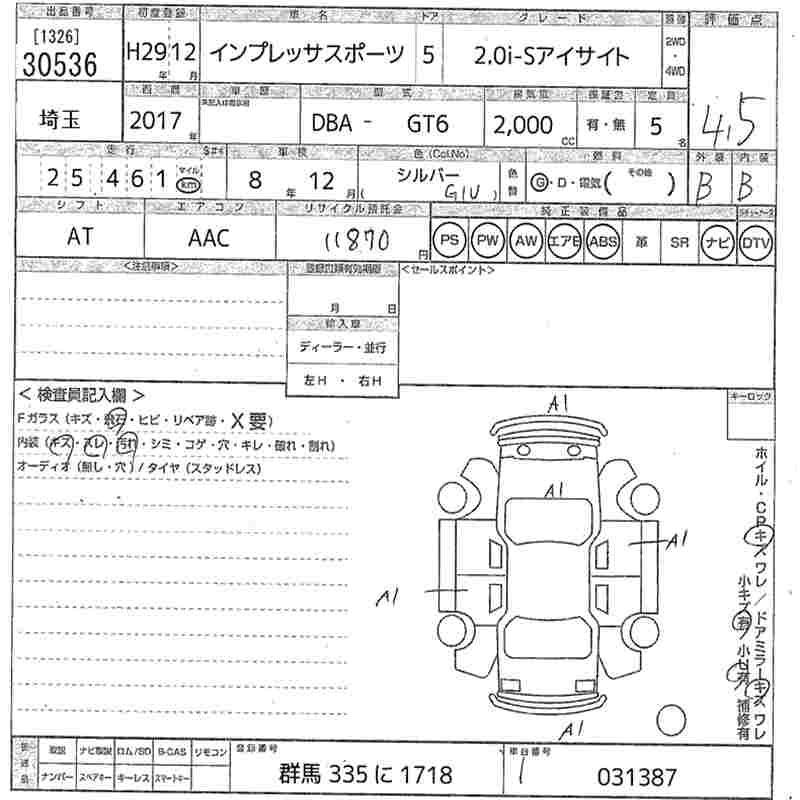 出品番号 初度登録 車名 ドア グレード 駆動 評価点
[1326]
30536 H29 12 年 月 インプレッサスポーツ 5 2.0i-Sアイサイト 2WD・4WD 4.5
西暦 車歴 型式 排気量 保証書 定員
埼玉 2017 年 DBA - GT6 2,000 CC 有・無 5 名
走行 車検 色(Col.No) 色替 燃料 外装 内装
25461 マイル km 8 年 12 月 シルバー ( G1U ) G・D・電気( その他 ) B B
シフト エアコン リサイクル預託金 純正装備品
AT AAC 11870 円 PS PW AW エアB ABS 革 SR ナビ DTV
<注意事項> 登録書類有効期限 <セールスポイント>
月 日
輸入車
ディーラー・並行
左H・右H
<検査員記入欄> キーロック
Fガラス(キズ・飛石・ヒビ・リペア跡・X要)
内装(キズ・スレ・汚れ・シミ・コゲ・穴・キレ・破れ・割れ)
オーディオ(無し・穴)/タイヤ(スタッドレス)
A1
A1
A1
A1
A1
ホイル・CPキズワレ/ドアミラーキズワレ
小キズ有/小凹有/補修有
取説 ナビ取説 ロム/SD B-CAS リモコン 登録番号 車台番号
ナンバー スペアキー キーレス スマートキー 群馬 335 に 1718 031387